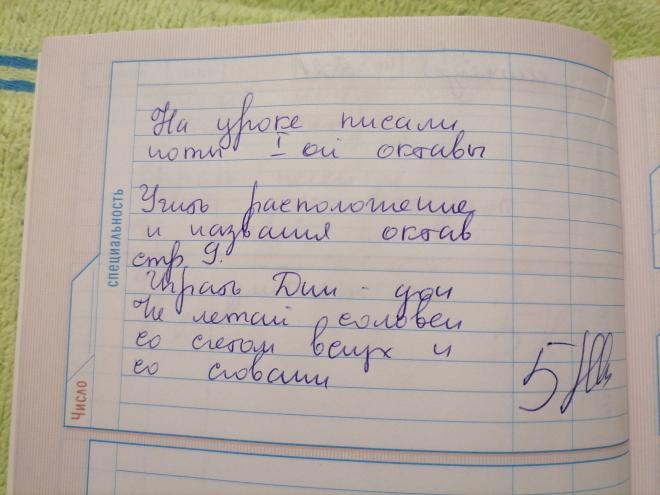 На уроке писали
ноты I ой октавы
Учить расположение
и названия октав
стр 9.
Играть Дин - дон
Не летай соловей
со счетом вслух и
со словами
5
специальность
Число